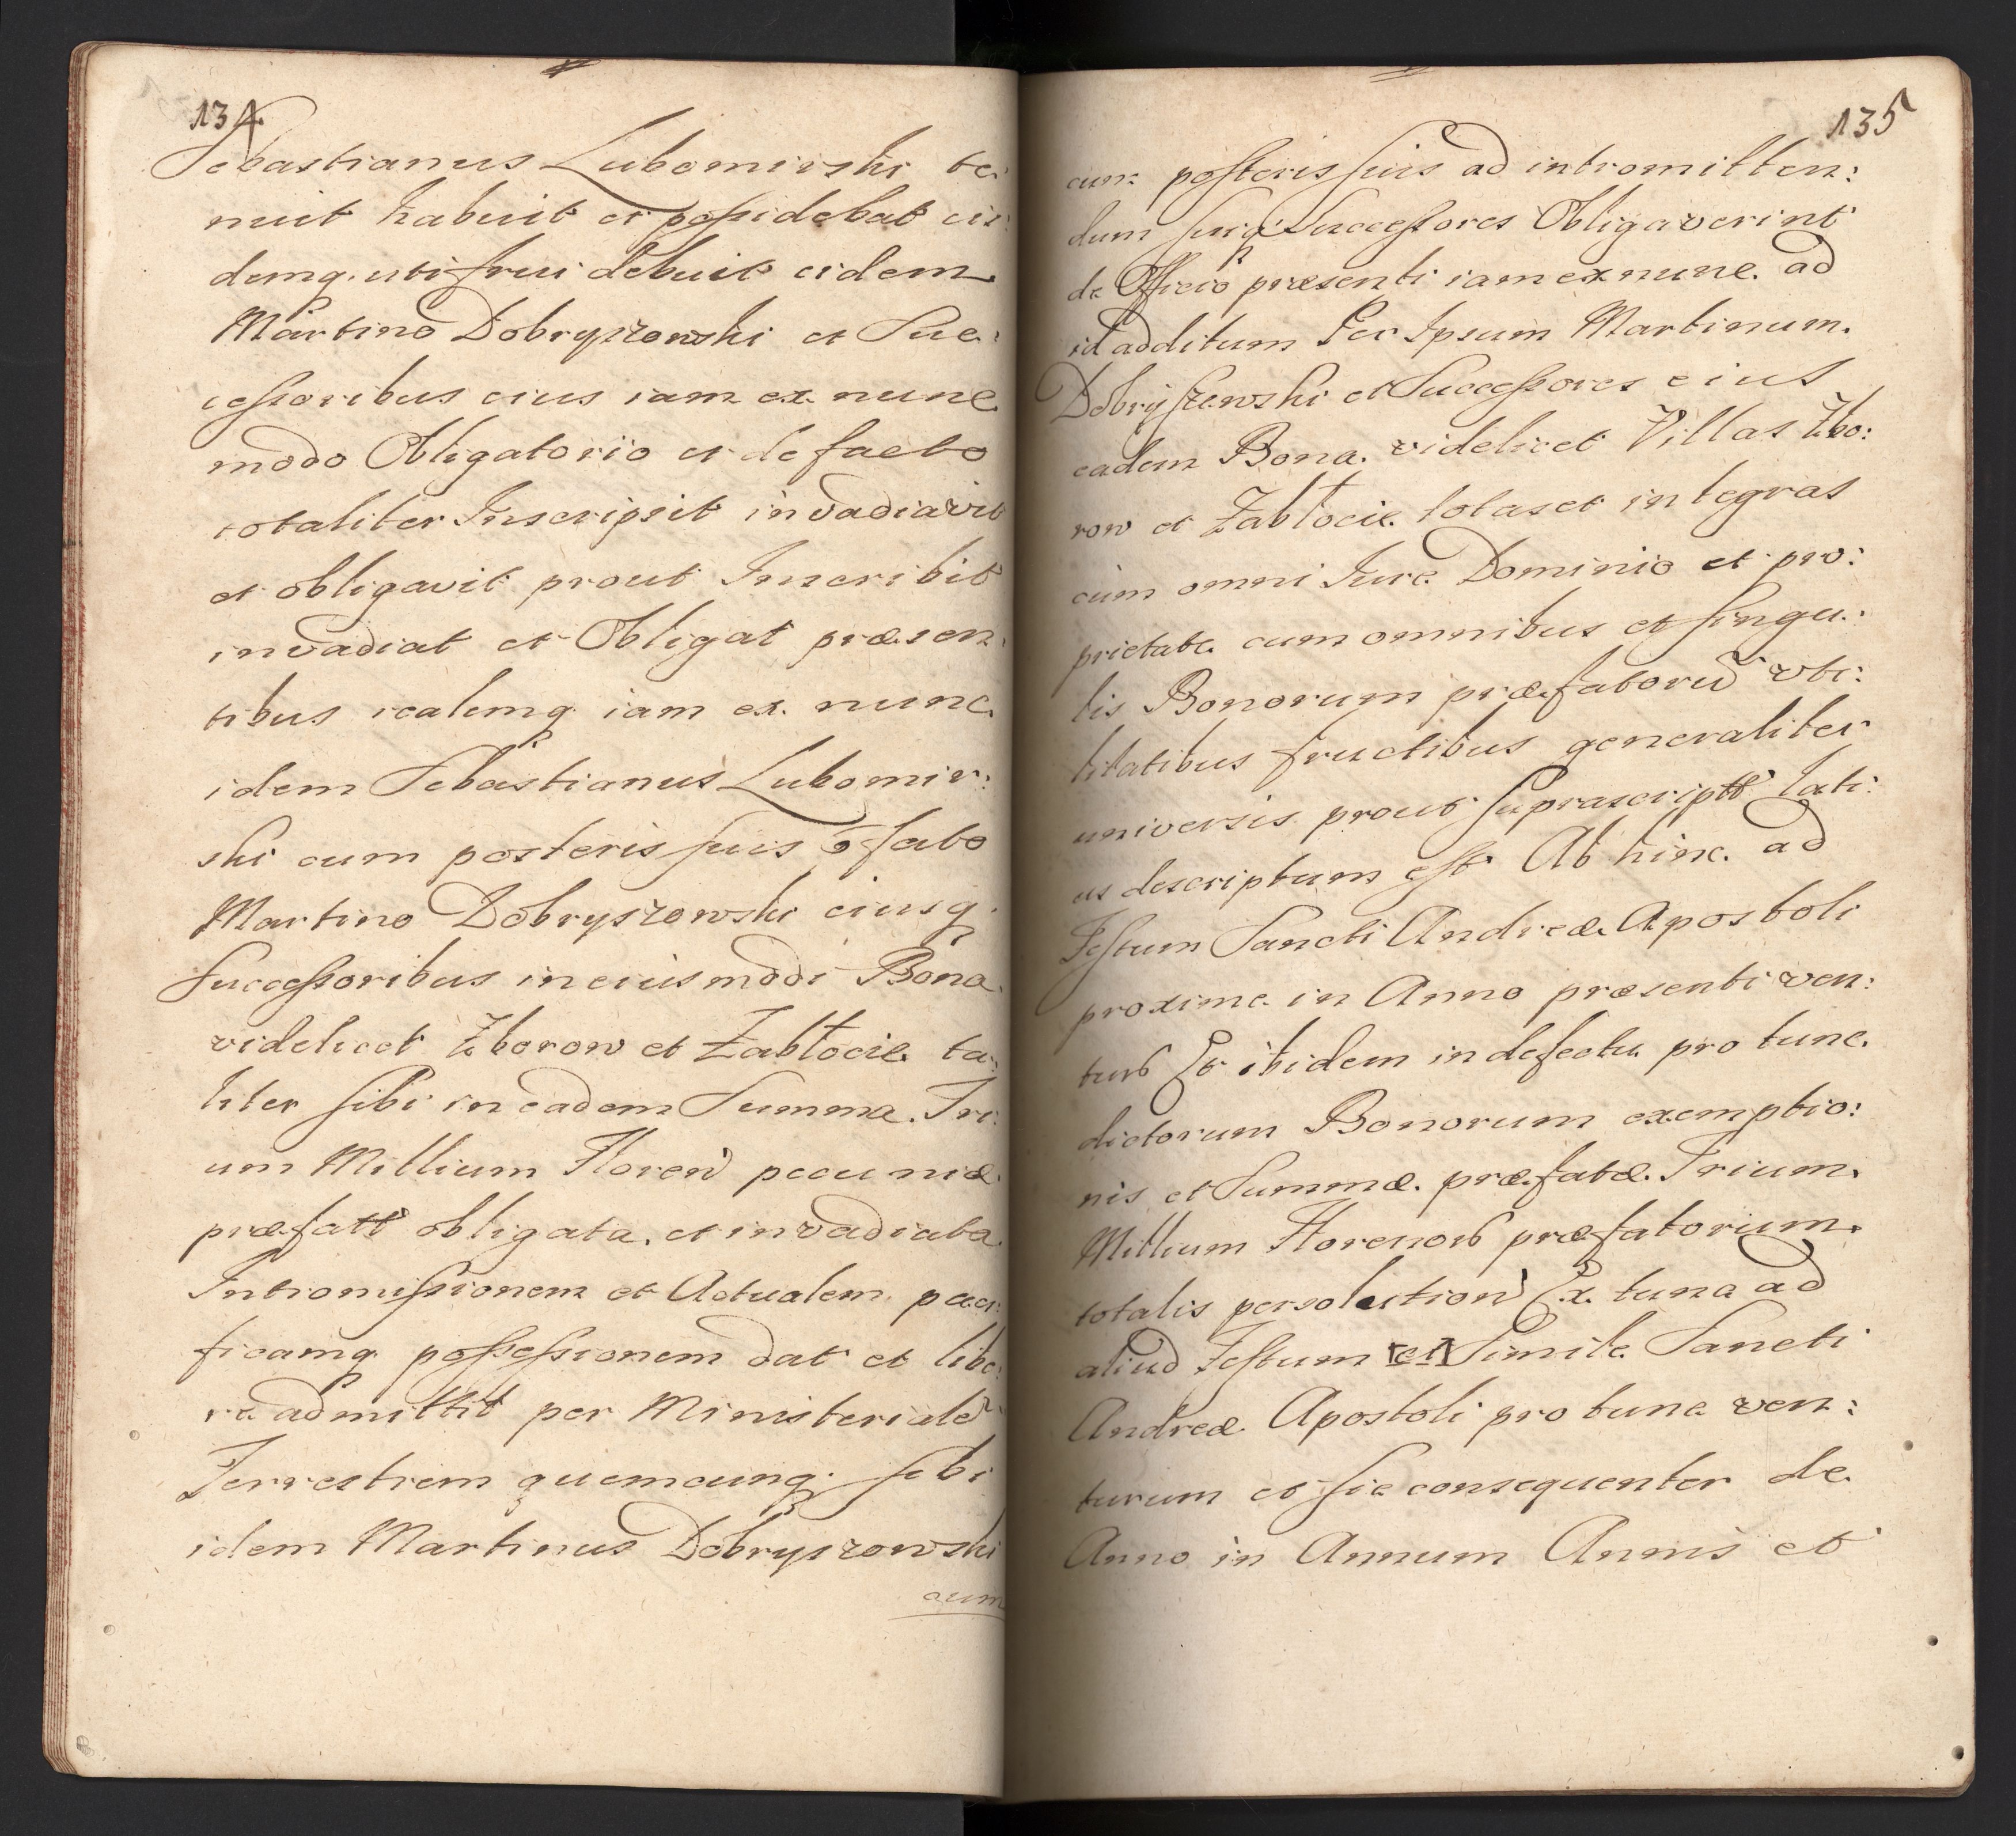 134.
Sebastianus Lubomirski te:
nuit habuit et possidebat eis:
demq. uti frui debuit eidem
Martino Dobryszowski et Suc:
cessoribus eius iam ex nunc
modo Obligatorio et de facto
totaliter Inscripsit invadiavit
et obligavit prout Inscribit
invadiat et Obligat præsen:
tibus realemq iam ex nunc
idem Sebastianus Lubomir:
ski cum posteris suis fato
Martino Dobryszowski eiusq.
Successoribus in eiusmodi Bona
videlicet Zborow et Zabłocie ta:
liter sibi in eadem Summa Tri:
um Millium Floren pecuniæ
præfatt obligata et invadiata
Intromissionem et Actualem paci:
ficamq possessionem dat et libe:
re admittit per Ministerialē
Terrestrem quemcunq. sibi
idem Martinus Dobryszowski
cum
135
cum posteris suis ad intromitten:
dum suiq Successores Obligaverint
de Officio præsenti iam ex nunc ad
id additum Per Ipsum Martinum
Dobryszewski et Successores eius
eadem Bona videlicet Villas Zbo:
row et Zabłocie totas et integras
cum omni Iure Dominio et pro:
prietate cum omnibus et singu:
lis Bonorum præfatorū uti:
litatibus fructibus generaliter
universis prout suprascriptt lati:
us descriptum est Ab hinc ad
Festum Sancti Andreæ Apostoli
proxime in Anno præsenti ven:
tur Et ibidem in defectu pro tunc
dictorum Bonorum exemptio:
nis et Summæ præfatæ Trium
Millium Florenor præfatorum
totalis persolution Ex tunc ad
aliud Festum et Simile Sancti
Andreæ Apostoli pro tunc ven:
turum et sic consequenter de
Anno in Annum Annis et